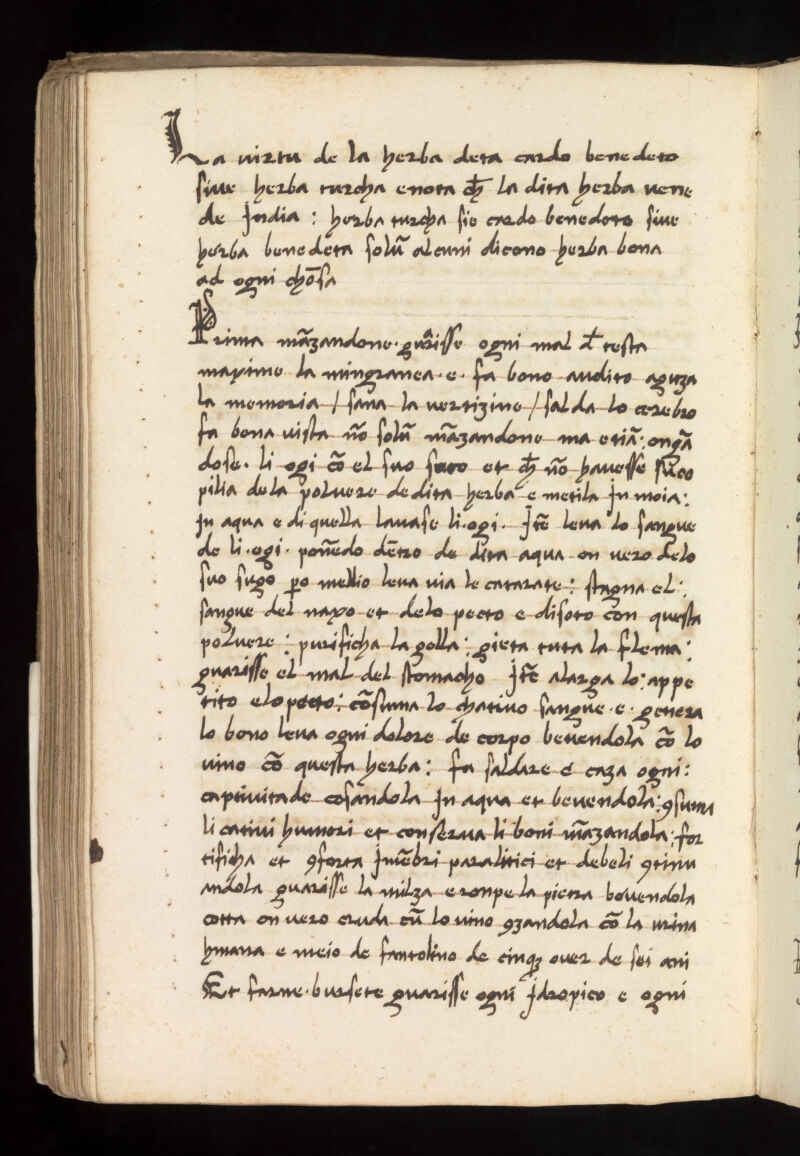 La uirtu de la herba deta cardo benedeto
siue herba turcha enota ch̄ la dita herba uene
de India : herba turcha sie cardo benedeto siue
herba benedeta solū alcuni dicono herba bona
ad ogni chōsa
Prima māzandone · guarisse ogni mal d̄ testa
maxime la mingranea · e · fa bono audito aguza
la memoria / sana la uertizine / salda lo cerebro
fa bona uista nō solū māzandone ma etiā : ongā
dose · li ogi cō el suo suco et ch̄ nō hauesse suco
pilia de la poluere de dita herba e metila In moia :
In aqua e di quella lauase li · ogi · Itē leua lo sangue
de li · ogi · ponēdo dētro de dita aqua on uero delo
suo sugo ꝑo mellio leua uia le catarate : stagna el :
sangue del naxo et delo pecto e disoto con questa
poluere : purificha la golla : gieta tuta la flema :
guarisse el mal del stomacho Itē alarga lo : appe
tito elo pecto : cōsuma lo chatiuo sangue · e · genera
lo bono leua ogni dolore de corpo beuendola cō lo
uino cō questa herba : fa saldare e caza ogni :
captiuitade cosandola In aqua et beuendola : ꝯsuma
li catiui humori et conserua li boni māzandola : for
tificha et ꝯforta Imēbri paralitici et debeli ꝯtinu
andola guarisse la milza e ronpe la pietra beuendola
cotta on uero cruda cū lo uino ꝯzandola cō la urina
humana e meio de fantolino de cinqꝫ ouer de sei ani
Et farne · bursete guarisse ogni Idropico e ogni